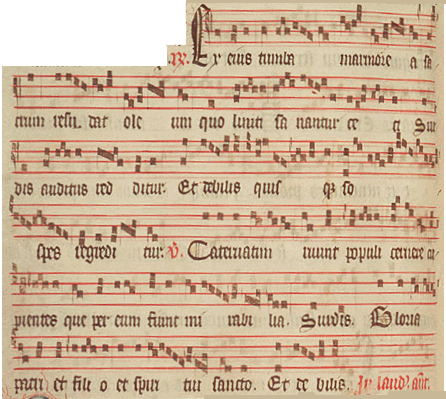 R. Ex eius tumba marmore a sa
crum resu dat ole um quo liniti sa nantur ce ci Sur
dis auditus red ditur. Et debilis quis q so
spes regredi tur. V. Catervatim ruunt populi cernere cu
pientes que per eum fiunt mi rabi lia. Surdis. Gloria
patri et fili o et spiri tui sancto. Et de bilis. In laud. ant.